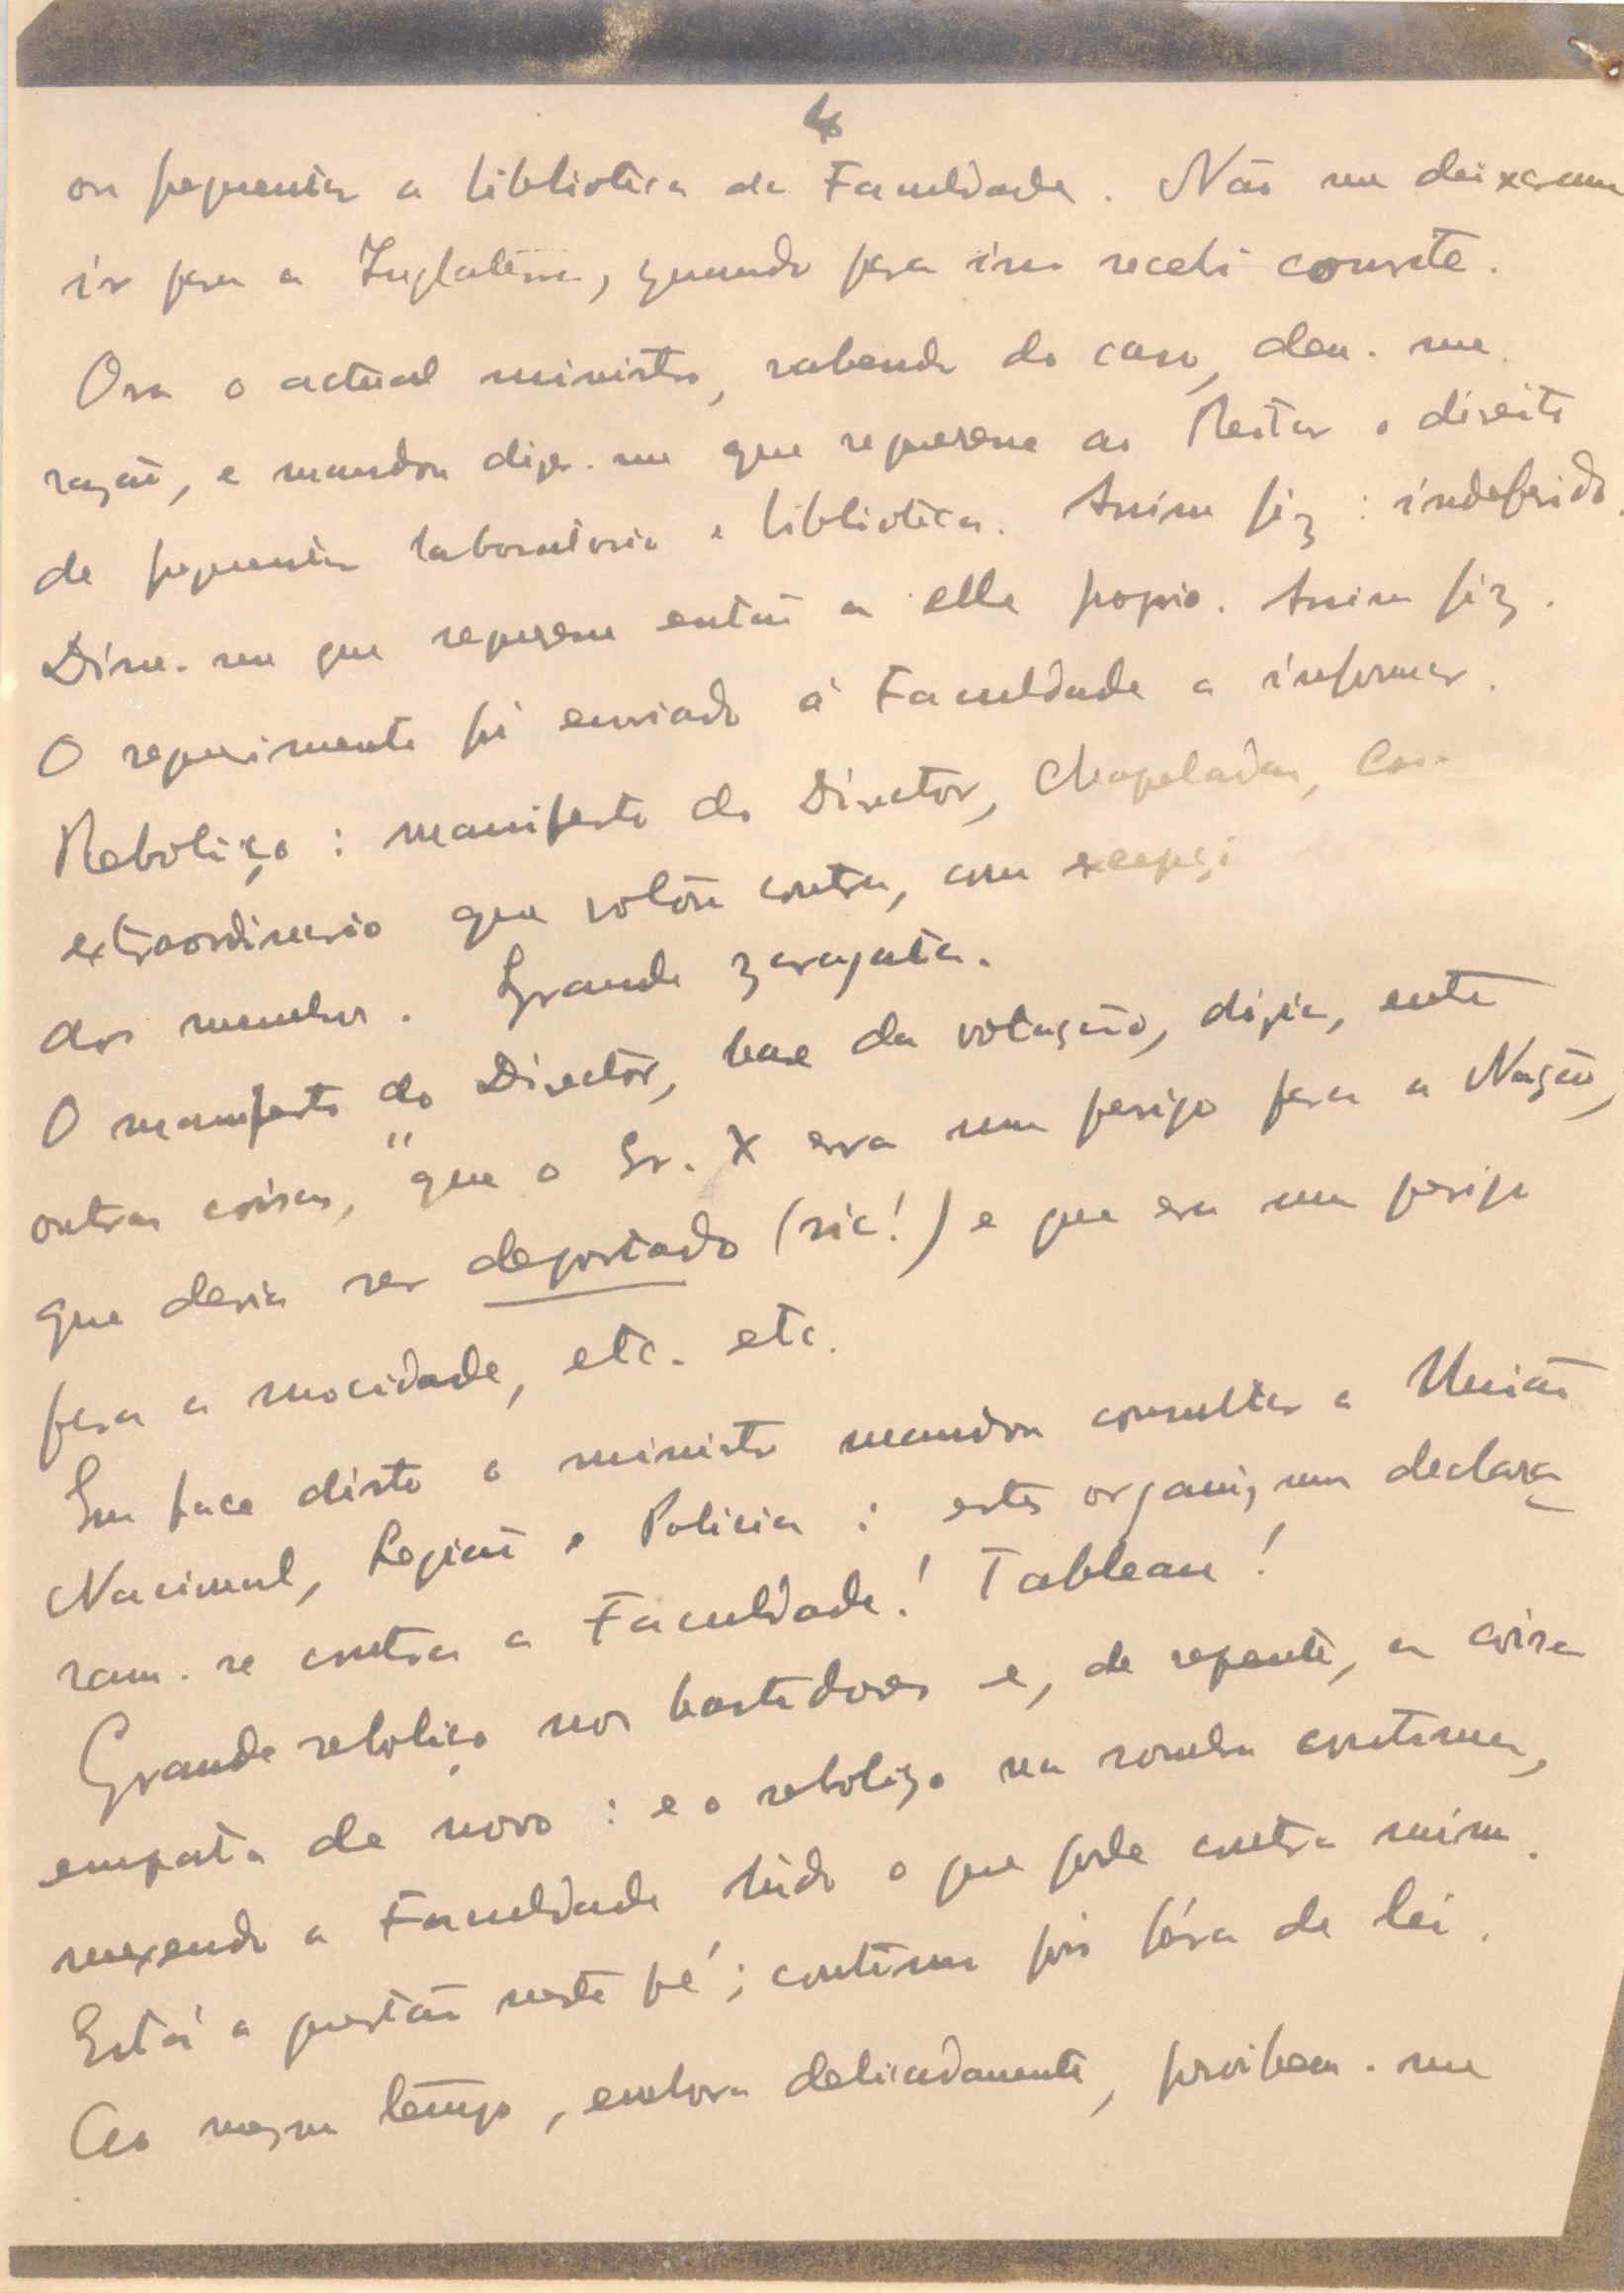 4
ou frequentar a biblioteca da Faculdade. Não me deixaram
ir para a Inglaterra, quando para isso recebi convite.
Ora o actual ministro, sabendo do caso, deu-me
razão, e mandou dizer-me que requeresse ao Reitor o direito
de frequentar laboratorio e biblioteca. Assim fiz: indeferido.
Disse-me que requeresse então a elle proprio. Assim fiz.
O requerimento foi enviado á Faculdade a informar.
Reboliço: manifesto do Director, Chapeladas,
extraordinario que votou contra, com excepçã
dos membros. Grande zaragata.
O manifesto do Director, base da votação, dizia, entre
outras coisas, "que o Sr. X era um perigo para a Nação,
que devia ser deportado (sic!) e que era um perigo
para a mocidade, etc. etc.
Em face disto o ministro mandou consultar a União
Nacional, Legião e Policia: estes organismos declara
ram-se contra a Faculdade! Tableau!
Grande reboliço nos bastidores e, de repente, a coisa
empata de novo: e o reboliço na sombra continua,
mexendo a Faculdade tudo o que pode contra mim.
Está a questão neste pé; continuo pois fóra da lei.
Ao mesmo tempo, embora delicadamente, proíbem-me